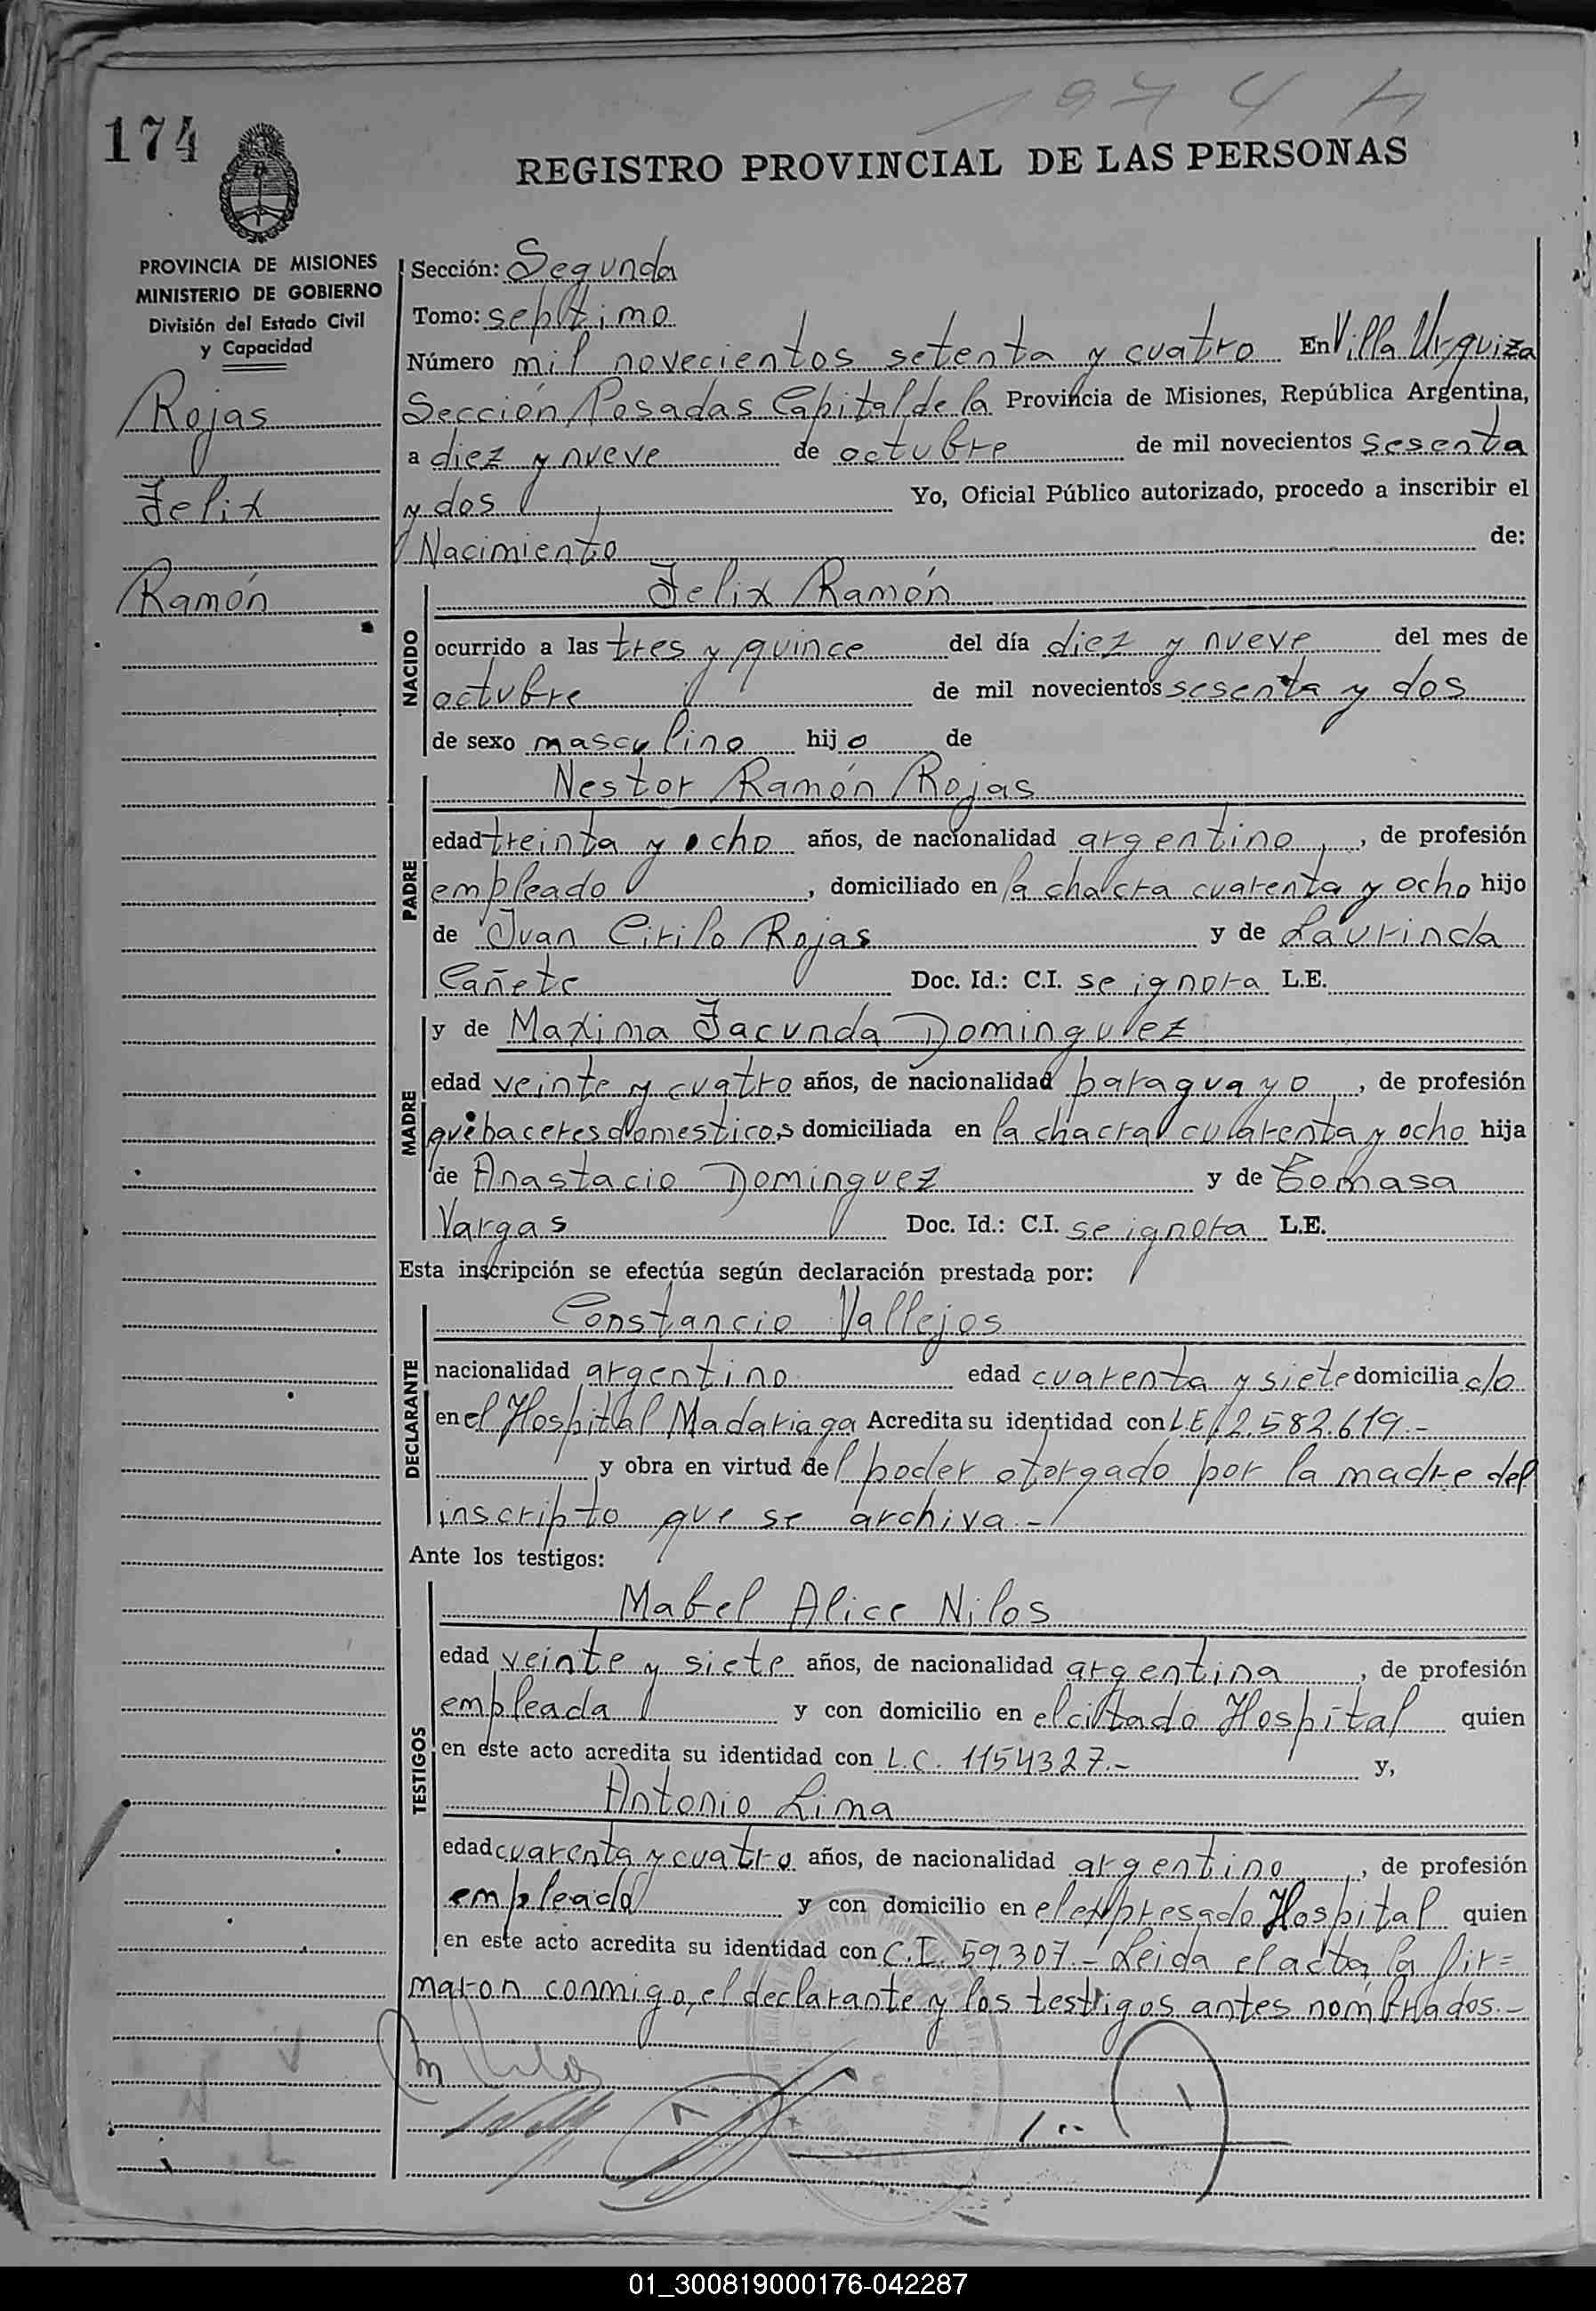 1974
174
REGISTRO PROVINCIAL DE LAS PERSONAS
PROVINCIA DE MISIONES
MINISTERIO DE GOBIERNO
División del Estado Civil
y Capacidad
Rojas
Felix
Ramón
Sección: Segunda
Tomo: septimo
Número mil novecientos setenta y cuatro En Villa Urquiza
Sección Posadas Capital de la Provincia de Misiones, República Argentina,
a diez y nueve de octubre de mil novecientos sesenta
y dos Yo, Oficial Público autorizado, procedo a inscribir el
Nacimiento de:
NACIDO
Felix Ramón
ocurrido a las tres y quince del día diez y nueve del mes de
octubre de mil novecientos sesenta y dos
de sexo masculino hijo de
PADRE
Nestor Ramón Rojas
edad treinta y ocho años, de nacionalidad argentino, de profesión
empleado, domiciliado en la chacra cuarenta y ocho hijo
de Juan Cirilo Rojas y de Laurinda
Cañete Doc. Id.: C.I. se ignora L.E.
MADRE
y de Maxima Facunda Dominguez
edad veinte y cuatro años, de nacionalidad paraguayo, de profesión
quehaceres domesticos domiciliada en la chacra cuarenta y ocho hija
de Anastacio Dominguez y de Tomasa
Vargas Doc. Id.: C.I. se ignora L.E.
Esta inscripción se efectúa según declaración prestada por:
DECLARANTE
Constancio Vallejos
nacionalidad argentino edad cuarenta y siete domicilia c/o
en el Hospital Madariaga Acredita su identidad con L.E. 2.582.619.-
y obra en virtud del poder otorgado por la madre del
inscripto que se archiva.-
Ante los testigos:
TESTIGOS
Mabel Alice Nilos
edad veinte y siete años, de nacionalidad argentina, de profesión
empleada y con domicilio en el citado Hospital quien
en este acto acredita su identidad con L.C. 1154327.- y,
Antonio Lima
edad cuarenta y cuatro años, de nacionalidad argentino, de profesión
empleado y con domicilio en el expresado Hospital quien
en este acto acredita su identidad con C.I. 59.307.- Leida el acta, la fir=
maron conmigo, el declarante y los testigos antes nombrados.-
01_300819000176-042287